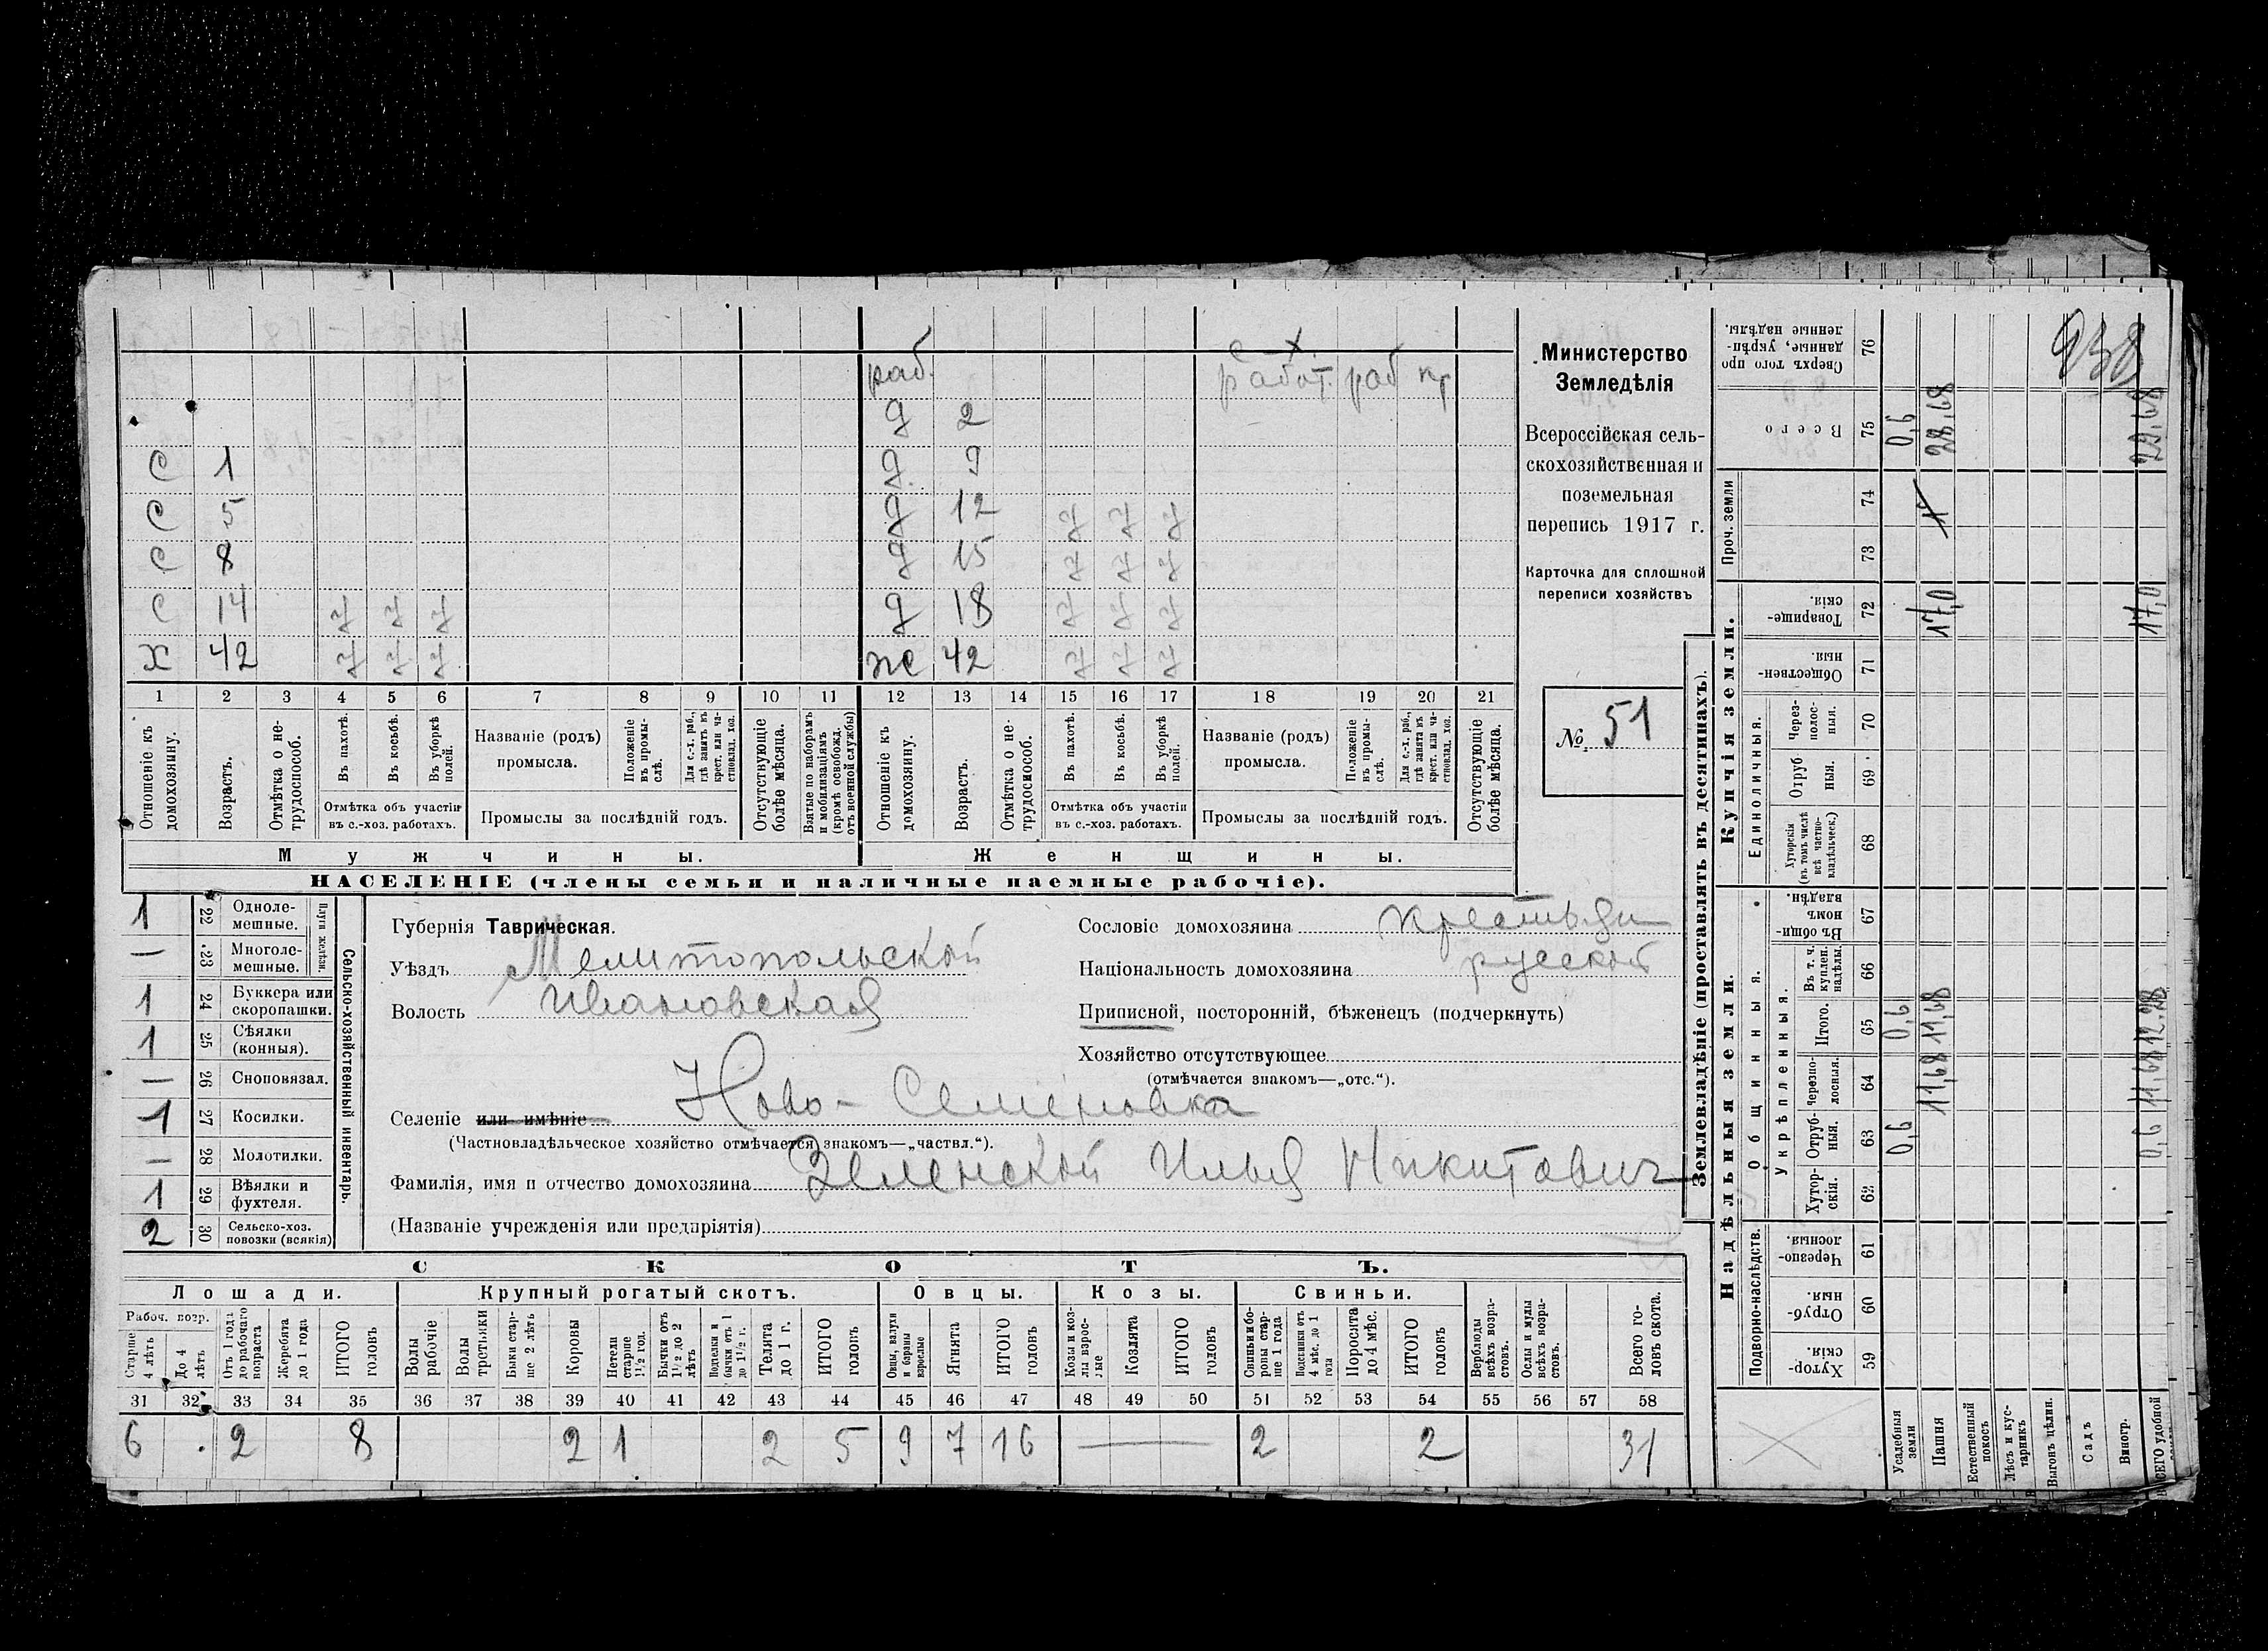 938
Министерство
Земледѣлія
Всероссійская сель-
скохозяйственная и
поземельная
перепись 1917 г.
Карточка для сплошной
переписи хозяйствъ
№ 51
раб. с-х. работ. раб
д 2
С 1 д 9
С 5 д 12
С 8 д 15
С 14 д 18
Х 42 же 42
1 2 3 4 5 6 7 8 9 10 11 12 13 14 15 16 17 18 19 20 21
Отношеніе къ домохозяину.
Возрастъ.
Отмѣтка о не-трудоспособ.
Въ пахотѣ.
Въ косьбѣ.
Въ уборкѣ полей.
Отмѣтка объ участіи
въ с.-хоз. работахъ.
Названіе (родъ)
промысла.
Положеніе въ промы-слѣ.
Для с.-х. раб., гдѣ занятъ въ крест. или ча-стновлад. хоз.
Промыслы за послѣдній годъ.
Отсутствующіе болѣе мѣсяца.
Взятые по наборамъ и мобилизаціямъ (кромѣ освобожд. отъ военной службы)
Отношеніе къ домохозяину.
Возрастъ.
Отмѣтка о не-трудоспособ.
Въ пахотѣ.
Въ косьбѣ.
Въ уборкѣ полей.
Отмѣтка объ участіи
въ с.-хоз. работахъ.
Названіе (родъ)
промысла.
Положеніе въ промы-слѣ.
Для с.-х. раб., гдѣ занята въ крест. или ча-стновлад. хоз.
Промыслы за послѣдній годъ.
Отсутствующіе болѣе мѣсяца.
Мужчины. Женщины.
НАСЕЛЕНІЕ (члены семьи и наличные наемные рабочіе).
Сельско-хозяйственный инвентарь.
Плуги желѣзн.
1 22 Одноле-мешные.
— 23 Многоле-мешные.
1 24 Буккера или скоропашки.
1 25 Сѣялки (конныя).
— 26 Сноповязал.
1 27 Косилки.
— 28 Молотилки.
1 29 Вѣялки и фухтеля.
2 30 Сельско-хоз. повозки (всякія)
Губернія Таврическая.
Уѣздъ Мелитопольской
Волость Ивановская
Селеніе или имѣніе Ново-Семеновка
(Частновладѣльческое хозяйство отмѣчается знакомъ—„частвл.“).
Фамилія, имя и отчество домохозяина Зеленской Илья Никитович
(Названіе учрежденія или предпріятія)
Сословіе домохозяина крестьян
Національность домохозяина русской
Приписной, посторонній, бѣженец (подчеркнуть)
Хозяйство отсутствующее
(отмѣчается знакомъ—„отс.“).
СКОТЪ.
Лошади. Крупный рогатый скотъ. Овцы. Козы. Свиньи.
Рабоч. возр.
Старше 4 лѣтъ
До 4 лѣтъ
Отъ 1 года до рабочаго возраста
Жеребята до 1 года
ИТОГО головъ
Волы рабочіе
Волы третьяки
Быки стар-ше 2 лѣтъ
Коровы
Нетели старше 1½ год.
Бычки отъ 1½ до 2 лѣтъ
Подтелки и бычки отъ 1 до 1½ г.
Телята до 1 г.
ИТОГО головъ
Овцы, валухи и бараны взрослые
Ягнята
ИТОГО головъ
Козы и коз-лы взрос-лые
Козлята
ИТОГО головъ
Свиньи и бо-ровы стар-ше 1 года
Подсвинки отъ 4 мѣс. до 1 года
Поросята до 4 мѣс.
ИТОГО головъ
Верблюды всѣхъ возра-стовъ.
Ослы и мулы всѣхъ возра-стовъ.
Всего го-ловъ скота.
31 32 33 34 35 36 37 38 39 40 41 42 43 44 45 46 47 48 49 50 51 52 53 54 55 56 57 58
6 2 8 2 1 2 5 9 7 16 — 2 2 31
Землевладѣніе (проставлять въ десятинахъ).
Надѣльныя земли.
Купчія земли.
Подворно-наслѣдств.
Общинныя.
Укрѣпленныя.
Единоличныя.
Проч. земли
Хутор-скія. 59
Отруб-ныя. 60
Черезпо-лосныя. 61
Хутор-скія. 62
Отруб-ныя. 63
Черезпо-лосныя. 64
Итого. 65
Въ т. ч. куплен. надѣлы. 66
Въ общи-номъ владѣн. 67
Хуторскія (въ томъ числѣ всѣ частно-владѣльческ.) 68
Отруб ныя. 69
Через-полос-ныя. 70
Обществен-ныя. 71
Товарище-скія. 72
73
74
Всего 75
Сверхъ того про данные, укрѣп-ленные надѣлы. 76
Усадебныя земли 0,6 0,6 0,6
Пашня 11,68 11,68 17,0 28,68
Естественный покосъ
Лѣсъ и кус-тарникъ
Выгонъ цѣлин.
Садъ
Виногр.
ВСЕГО удобной 0,6 11,68 12,28 17,0 29,68